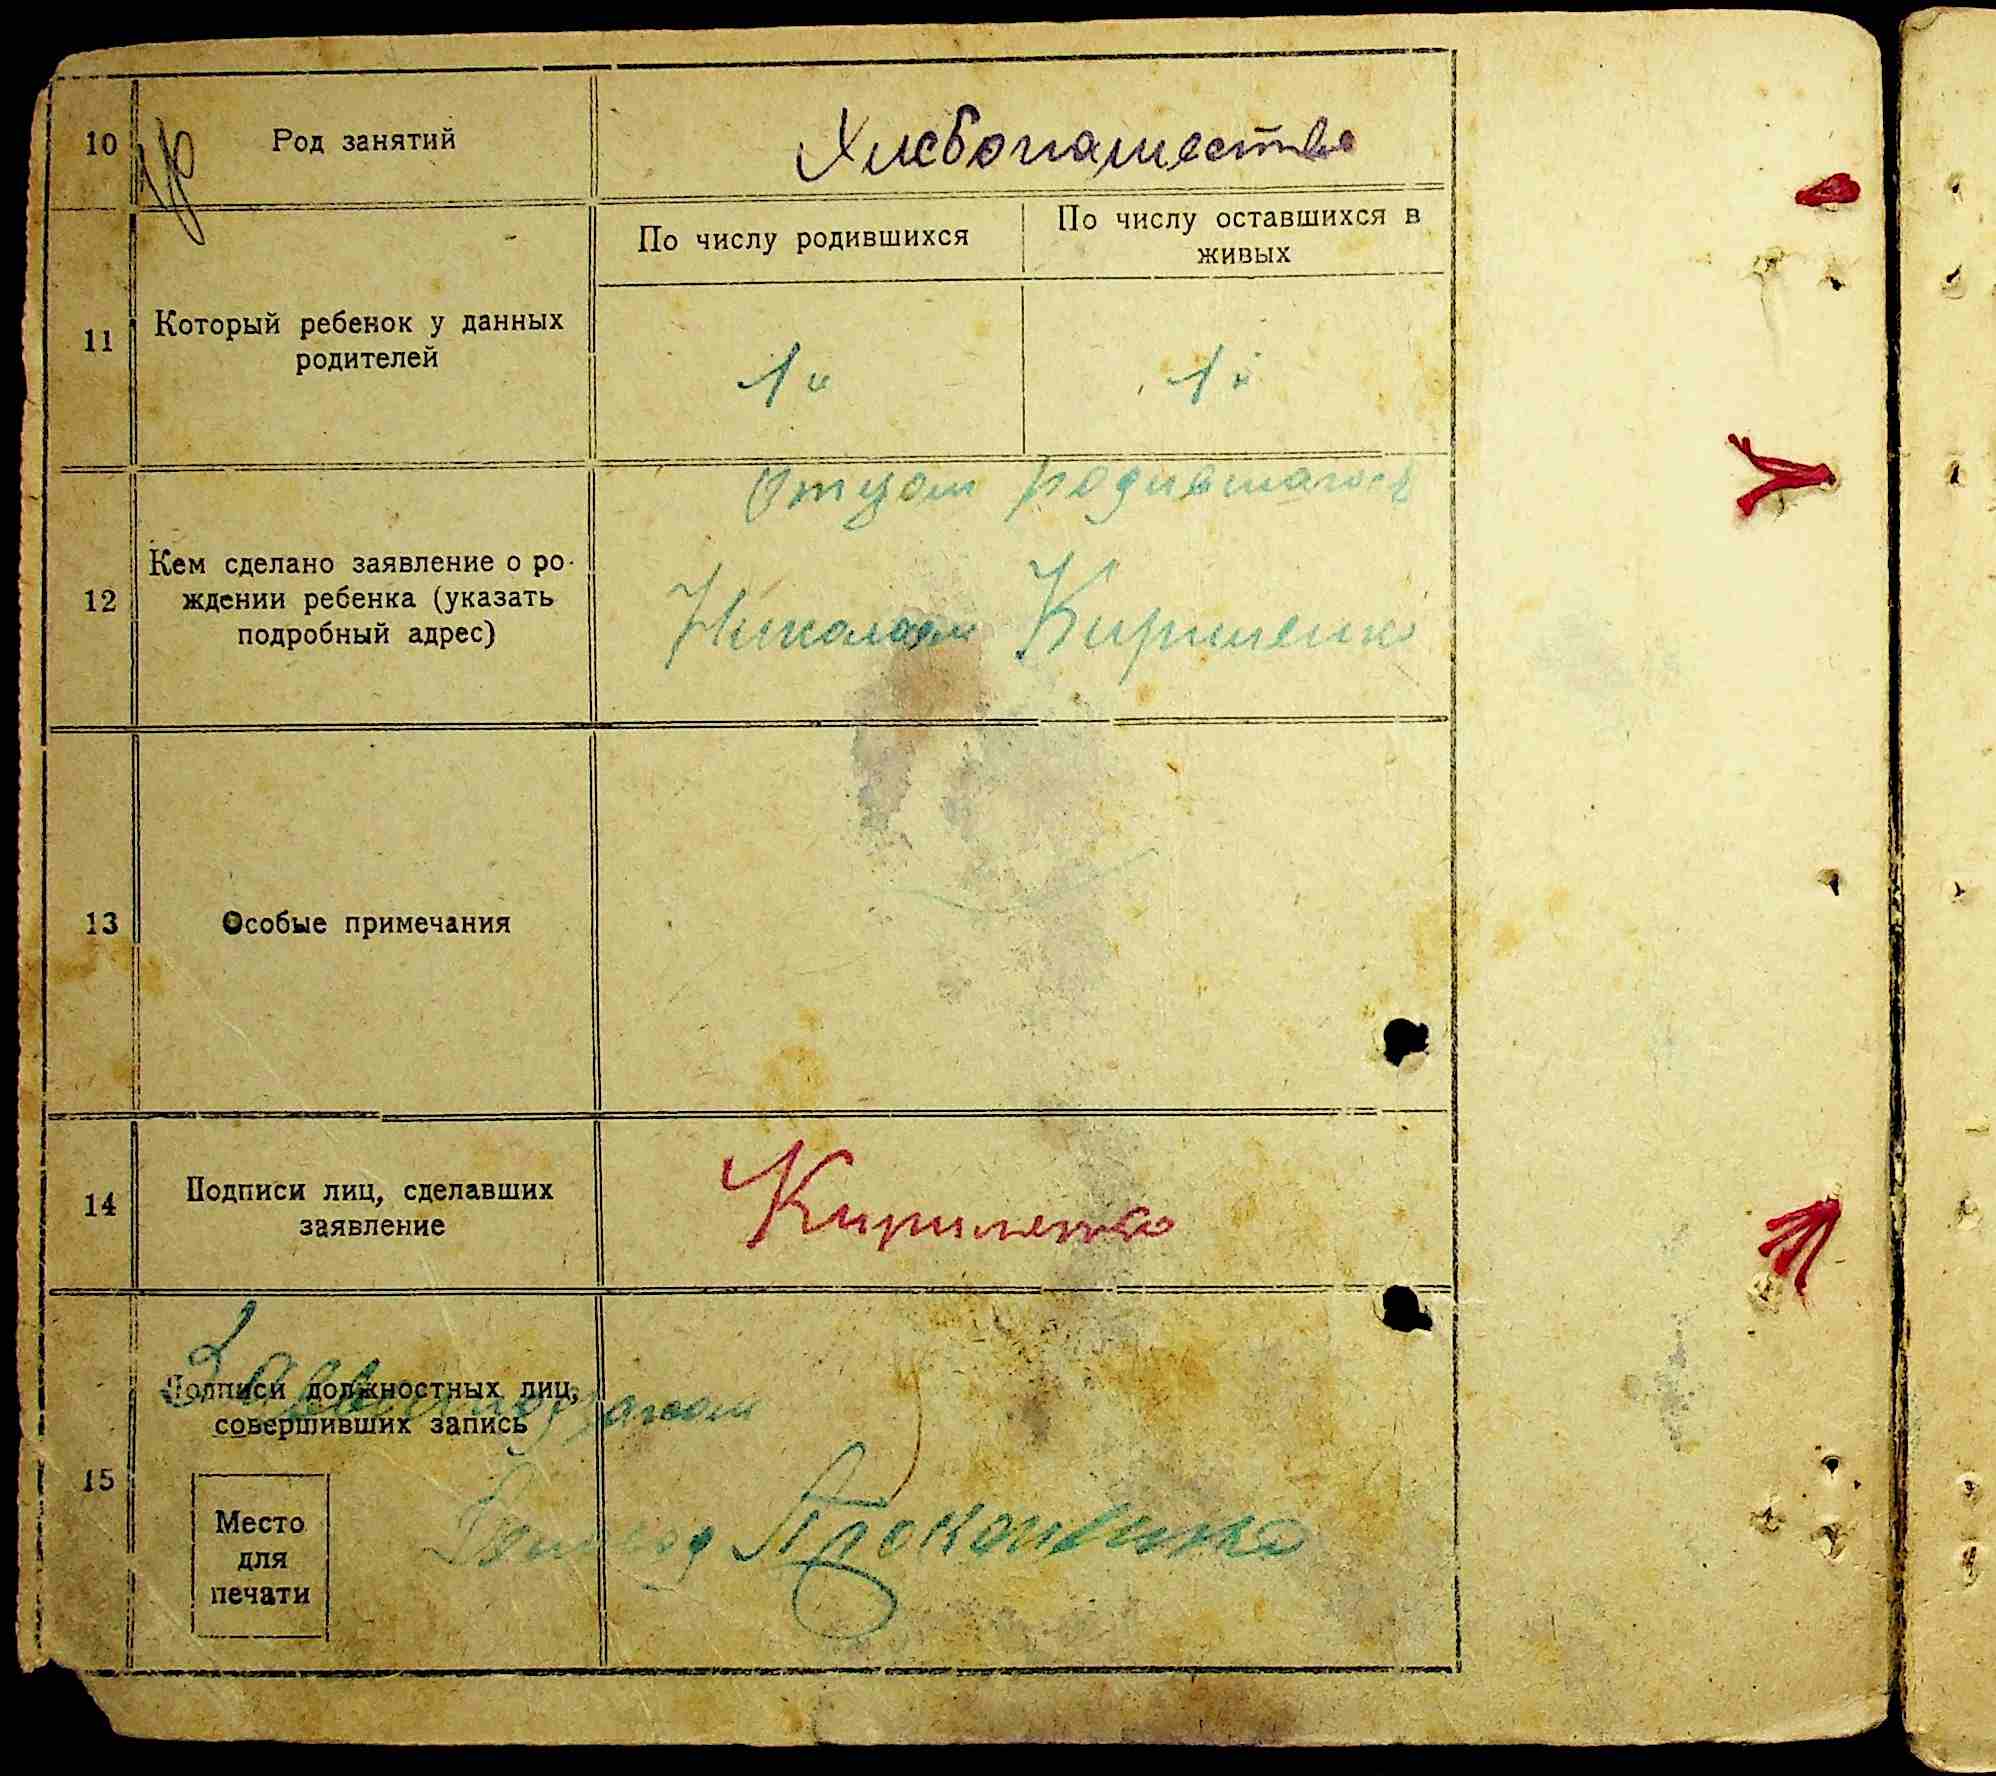 10
Род занятий
Хлебопашество
По числу родившихся
По числу оставшихся в
живых
11
Который ребенок у данных
родителей
1й
1й
12
Кем сделано заявление о ро-
ждении ребенка (указать
подробный адрес)
Отцом родившагося
Николаем Кириленко
13
Особые примечания
14
Подписи лиц, сделавших
заявление
Кириленко
15
Подписи должностных лиц,
совершивших запись
Место
для
печати